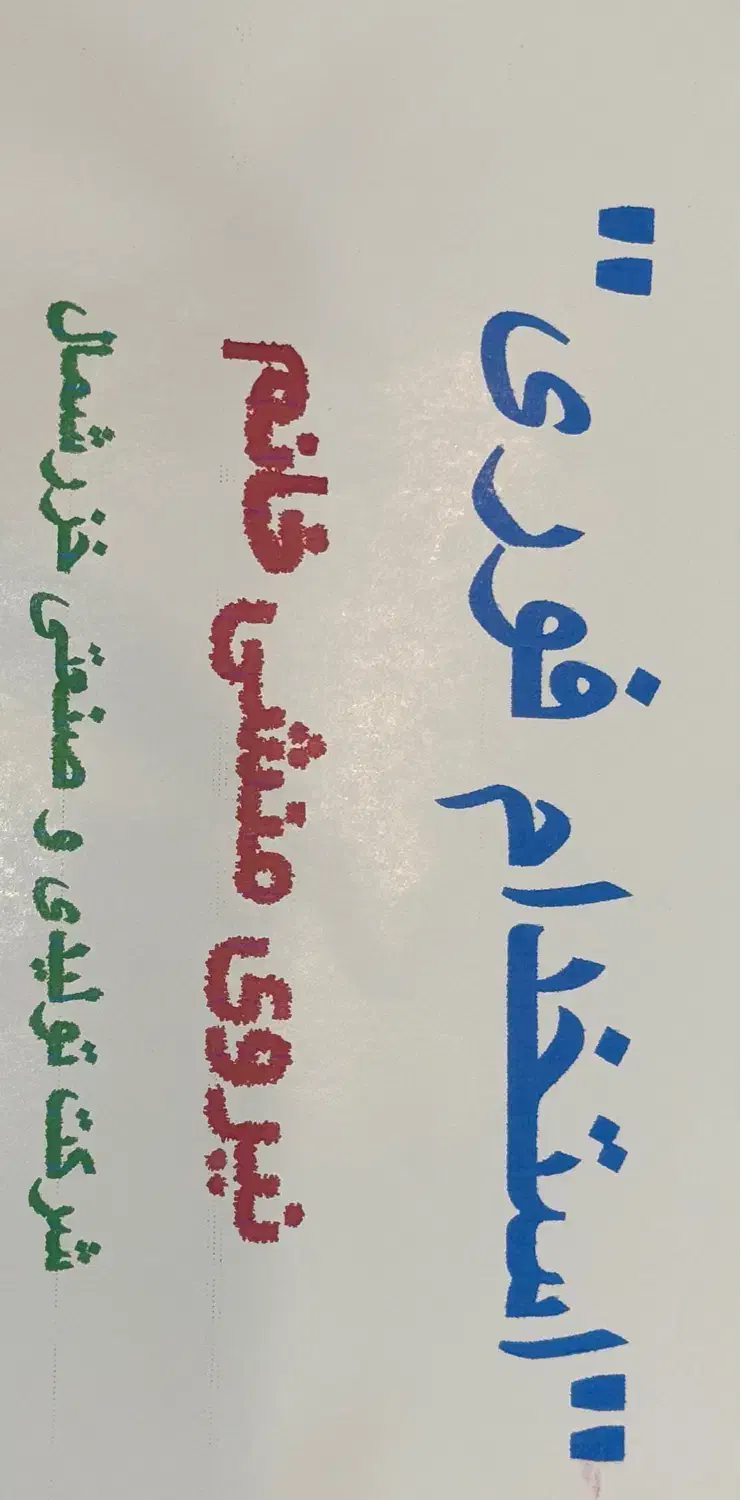 "استخدام فوری"
نیروی منشی خانم
شرکت تولیدی و صنعتی خزر شمال